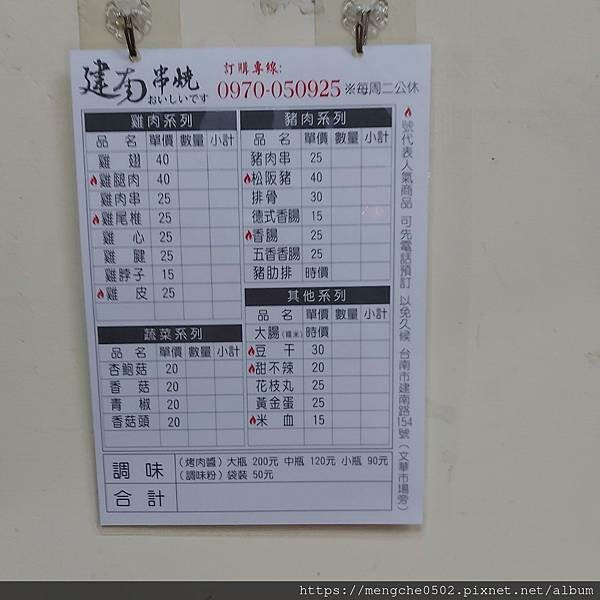 建南串燒
おいしいです
訂購專線:
0970-050925 ※每周二公休
雞肉系列
品名 單價 數量 小計
雞翅 40
雞腿肉 40
雞肉串 25
雞尾椎 25
雞心 25
雞腱 25
雞脖子 15
雞皮 25
蔬菜系列
品名 單價 數量 小計
杏鮑菇 20
香菇 20
青椒 20
香菇頭 20
豬肉系列
品名 單價 數量 小計
豬肉串 25
松阪豬 40
排骨 30
德式香腸 15
香腸 25
五香香腸 25
豬肋排 時價
其他系列
品名 單價 數量 小計
大腸(糯米) 時價
豆干 30
甜不辣 20
花枝丸 25
黃金蛋 25
米血 15
調味
(烤肉醬) 大瓶 200元 中瓶 120元 小瓶 90元
(調味粉) 袋裝 50元
合計
號代表人氣商品 可先電話預訂 以免久候 台南市建南路154號(文華市場旁)
https://mengche0502.pixnet.net/album